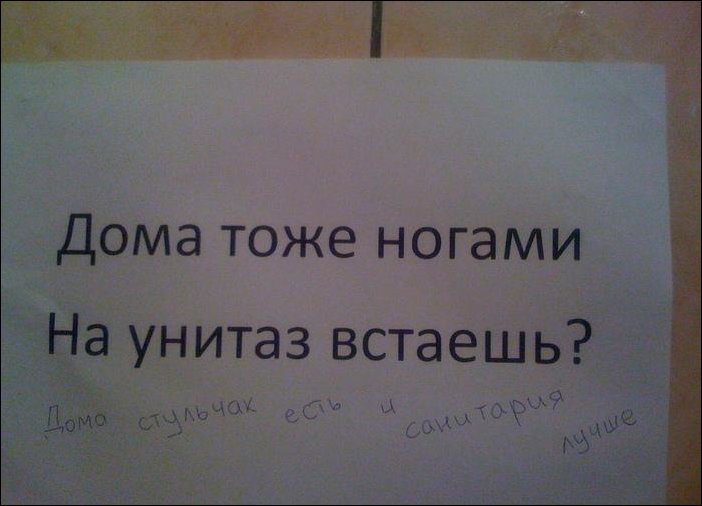 Дома тоже ногами
На унитаз встаешь?
Дома стульчак есть и санитария
лучше